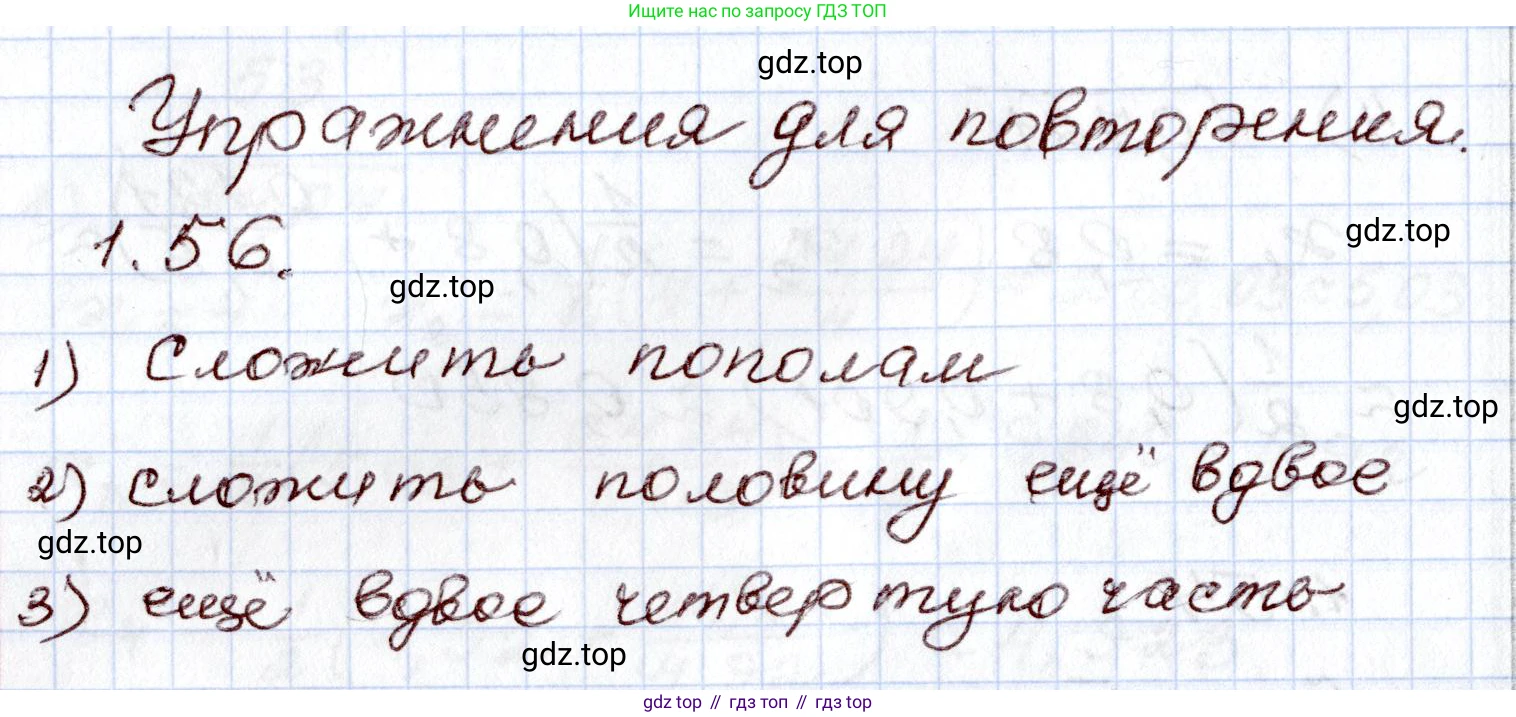 Ищите нас по запросу ГДЗ ТОП
gdz.top
Упражнения для повторения.
1.56.
gdz.top
gdz.top
1) Сложить пополам
gdz.top
2) сложить половину ещё вдвое
gdz.top
3) ещё вдвое четвертую часть
gdz.top
gdz top // гдз топ // гдз top